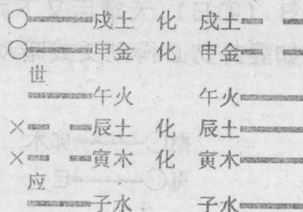 ○戌土 化 戌土
○申金 化 申金
世
午火 午火
×辰土 化 辰土
×寅木 化 寅木
应
子水 子水